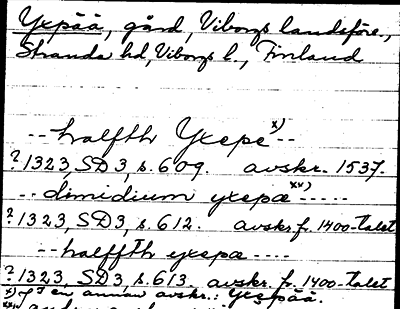 Yxpää, gård, Viborgs landsförs.,
Stranda hd, Viborgs l., Finland
-- halfth Yxepe x) --
? 1323, SD 3, s. 609. avskr. 1537.
-- dimidium yxepæ xx) -----
? 1323, SD 3, s. 612. avskr. fr. 1400-talet
-- halffth yxepæ ----
? 1323, SD 3, s. 613. avskr. fr. 1400-talet
x) I en annan avskr.: Yxspää.
xx)